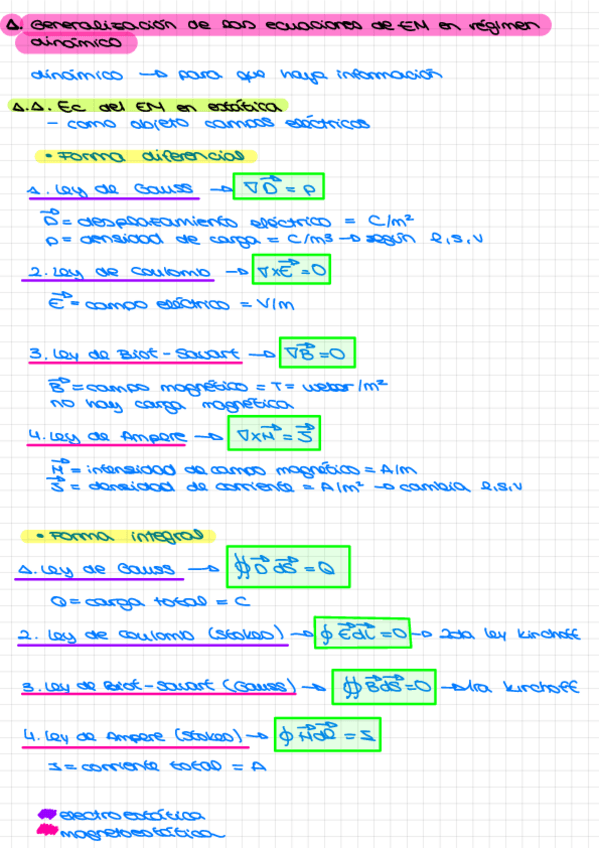 1. Generalización de las ecuaciones de EM en régimen
dinámico
dinámico → para que haya información
1.1. Ec del EM en estática
- como objeto campos eléctricos
• Forma diferencial
1. Ley de Gauss → ∇D⃗ = ρ
D⃗ = desplazamiento eléctrico = C/m²
ρ = densidad de carga = C/m³ → según l, s, v
2. Ley de Coulomb → ∇×E⃗ = 0
E⃗ = campo eléctrico = V/m
3. Ley de Biot-Savart → ∇B⃗ = 0
B⃗ = campo magnético = T = weber/m²
no hay carga magnética
4. Ley de Ampere → ∇×H⃗ = J⃗
H⃗ = intensidad de campo magnético = A/m
J⃗ = densidad de corriente = A/m² → cambia l, s, v
• Forma integral
1. Ley de Gauss → ∯ D⃗ dS⃗ = Q
Q = carga total = C
2. Ley de Coulomb (Stokes) → ∮ E⃗ dl⃗ = 0 → 2da ley Kirchoff
3. Ley de Biot-Savart (Gauss) → ∯ B⃗ dS⃗ = 0 → 1ra Kirchoff
4. Ley de Ampere (Stokes) → ∮ H⃗ dl⃗ = I
I = corriente total = A
electroestática
magnetoestática